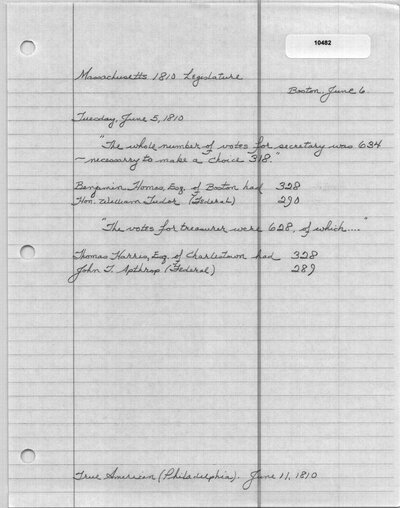 10482
Massachusetts 1810 Legislature
Boston, June 6.
Tuesday, June 5, 1810
"The whole number of votes for secretary was 634
— necessary to make a choice 318."
Benjamin Homas, Esq. of Boston had 328
Hon. William Tudor (Federal) 290
"The votes for treasurer were 628, of which...."
Thomas Harris, Esq. of Charlestown had 328
John T. Apthrop (Federal) 289
True American (Philadelphia). June 11, 1810